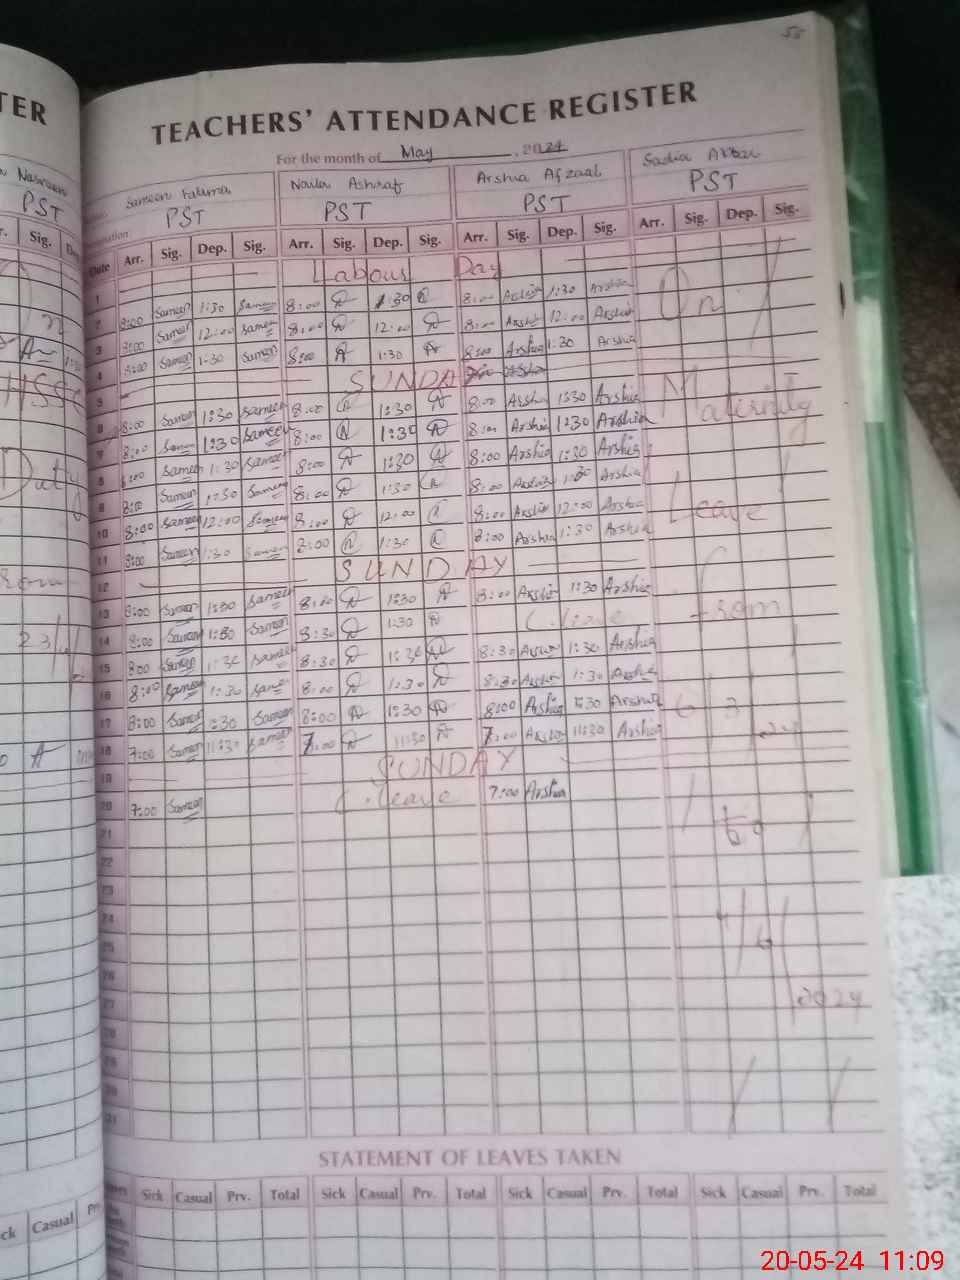 58
TER
TEACHERS' ATTENDANCE REGISTER
For the month of May, 2024
Nasreen
PST
Sameen Fatima
PST
Naila Ashraf
PST
Arshia Afzaal
PST
Sadia
PST
Sig.
Date Arr. Sig. Dep. Sig. Arr. Sig. Dep. Sig. Arr. Sig. Dep. Sig. Arr. Sig. Dep. Sig.
1 Labour Day
2 8:00 Sameen 1:30 Sameen 8:00 1:30 8:00 Arshia 1:30 Arshia On
3 8:00 Sameen 12:00 Sameen 8:00 12:00 8:00 Arshia 12:00 Arshia
4 8:00 Sameen 1:30 Sameen 8:00 1:30 8:00 Arshia 1:30 Arshia
5 SUNDAY
6 8:00 Sameen 1:30 Sameen 8:00 1:30 8:00 Arshia 1:30 Arshia Maternity
7 8:00 Sameen 1:30 Sameen 8:00 1:30 8:00 Arshia 1:30 Arshia
8 8:00 Sameen 1:30 Sameen 8:00 1:30 8:00 Arshia 1:30 Arshia
9 8:00 Sameen 1:30 Sameen 8:00 1:30 8:00 Arshia 1:30 Arshia
10 8:00 Sameen 12:00 Sameen 8:00 12:00 8:00 Arshia 12:00 Arshia Leave
11 8:00 Sameen 1:30 Sameen 8:00 1:30 8:00 Arshia 1:30 Arshia
12 SUNDAY
13 8:00 Sameen 1:30 Sameen 8:00 1:30 8:00 Arshia 1:30 Arshia
14 8:00 Sameen 1:30 Sameen 8:30 1:30 C.leave from
15 8:00 Sameen 1:30 Sameen 8:30 1:30 8:30 Arshia 1:30 Arshia
16 8:00 Sameen 1:30 Sameen 8:00 1:30 8:30 Arshia 1:30 Arshia
17 8:00 Sameen 1:30 Sameen 8:00 1:30 8:00 Arshia 1:30 Arshia 6 3
18 7:00 Sameen 11:30 Sameen 7:00 11:30 7:00 Arshia 11:30 Arshia 24
19 SUNDAY
20 7:00 Sameen C.leave 7:00 Arshia
21 to
22
23
24
25 6
26
27 2024
28
29
30
31
Duty
STATEMENT OF LEAVES TAKEN
Sick Casual Prv. Total Sick Casual Prv. Total Sick Casual Prv. Total Sick Casual Prv. Total
Casual
20-05-24 11:09